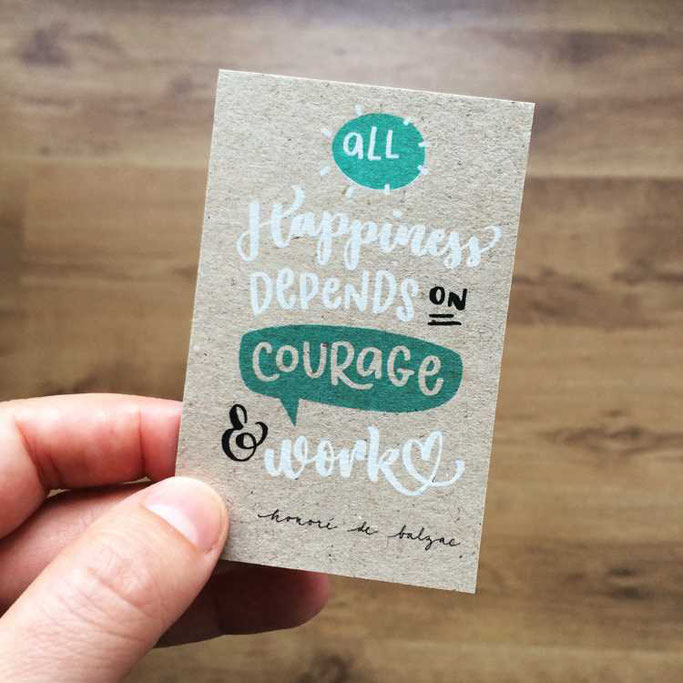 all
Happiness
DEPENDS ON
COURAGE
& work
honoré de balzac